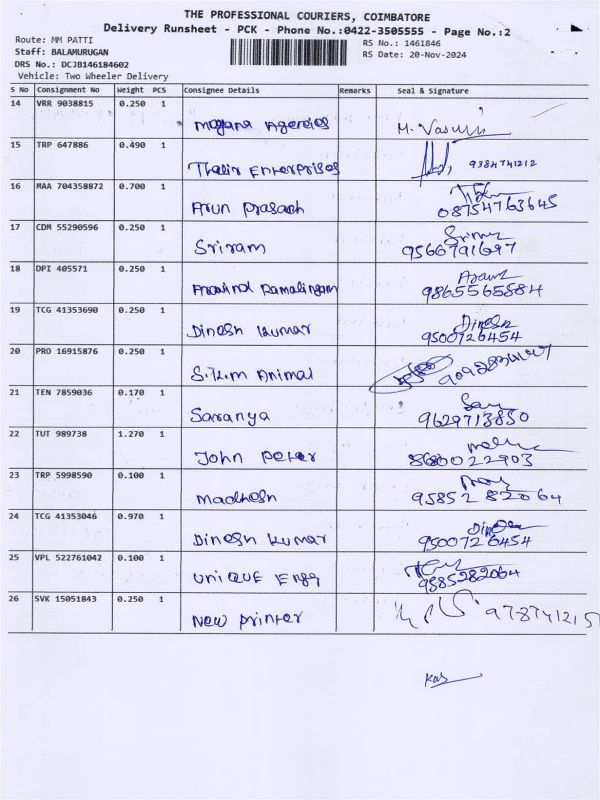 THE PROFESSIONAL COURIERS, COIMBATORE
Delivery Runsheet - PCK - Phone No.:0422-3505555 - Page No.:2
Route: MM PATTI
RS No.: 1461846
Staff: BALAMURUGAN
RS Date: 20-Nov-2024
DRS No.: DCJB146184602
Vehicle: Two Wheeler Delivery
S No Consignment No Weight PCS Consignee Details Remarks Seal & Signature
14 VRR 9038815 0.250 1
Magana Agencies M. Vasuki
15 TRP 647886 0.490 1
Thalir Enterprises 9384741212
16 MAA 704358872 0.700 1
Arun Prasath 08754763645
17 CDM 55290596 0.250 1
Sriram 9566791697
18 DPI 405571 0.250 1
Aravind Ramalingam 9865565884
19 TCG 41353690 0.250 1
Dinesh kumar Dinesh 9500726454
20 PRO 16915876 0.250 1
S.K.m Animal
21 TEN 7859036 0.170 1
Saranya 9629713850
22 TUT 989738 1.270 1
John Peter 8680022903
23 TRP 5998590 0.100 1
Madhesh 9585282064
24 TCG 41353046 0.970 1
Dinesh kumar Dinesh 9500726454
25 VPL 522761042 0.100 1
UNIQUE Engg 9585282064
26 SVK 15051843 0.250 1
New Printer 978741215